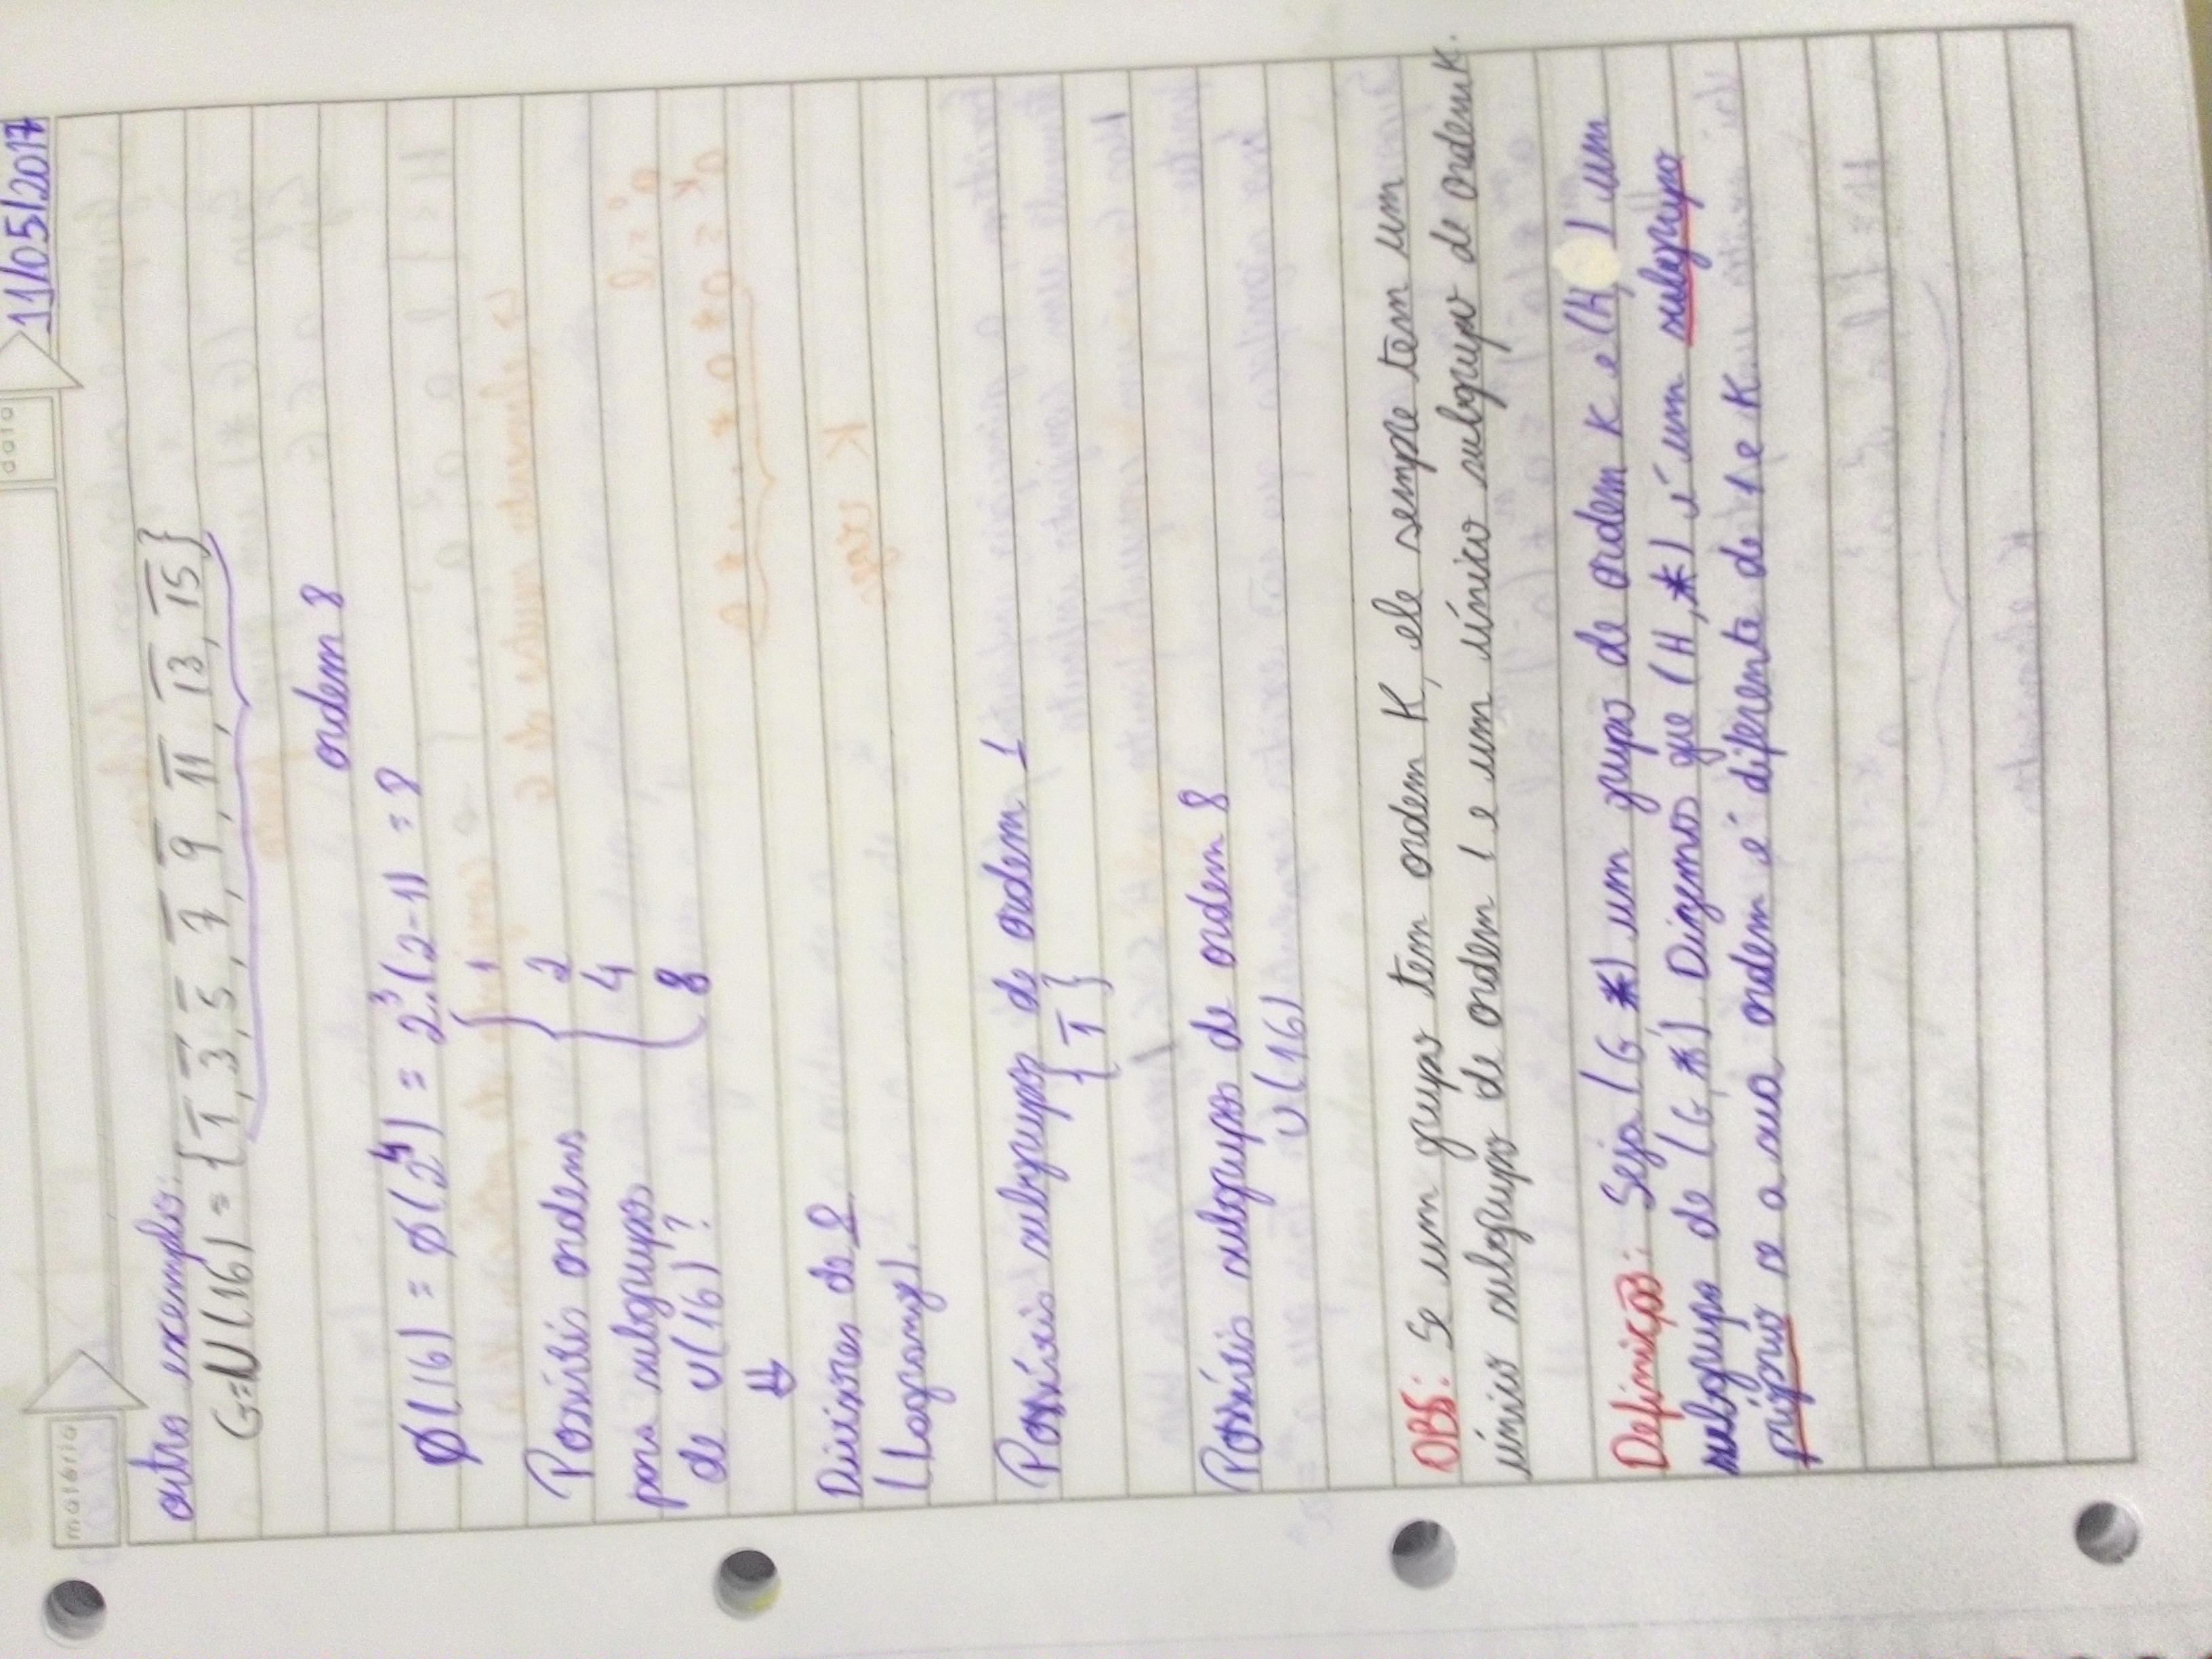 matéria
data
11/05/2017
outro exemplo:
G=U(16) = {1̅, 3̅, 5̅, 7̅, 9̅, 1̅1̅, 1̅3̅, 1̅5̅}
ordem 8
ϕ(16) = ϕ(2⁴) = 2³.(2-1) = 8
Possíveis ordens
para subgrupos
de U(16)?
1
2
4
8
⇓
Divisores de 8
(Lagrange).
Possíveis subgrupos de ordem 1
{1̅}
Possíveis subgrupos de ordem 8
U(16)
OBS: Se um grupo tem ordem K, ele sempre tem um
único subgrupo de ordem 1 e um único subgrupo de ordem K.
Definição: Seja (G,*) um grupo de ordem K e (H, ) um
subgrupo de (G,*) Dizemos que (H,*) é um subgrupo
próprio se a sua ordem é diferente de 1 e K.